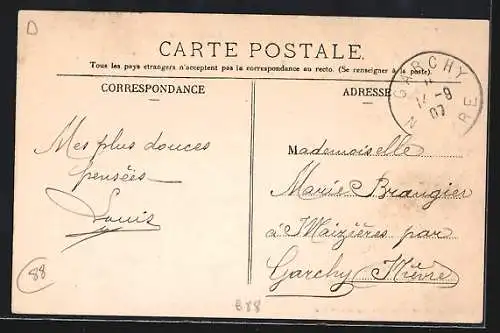 D
CARTE POSTALE.
Tous les pays étrangers n'acceptent pas la correspondance au recto. (Se renseigner à la poste).
CORRESPONDANCE
ADRESSE
GARCHY
14 -9
07
Mes plus douces
pensées
Louis
Mademoiselle
Marie Brangier
à Maizières par
Garchy Nièvre
88
B88